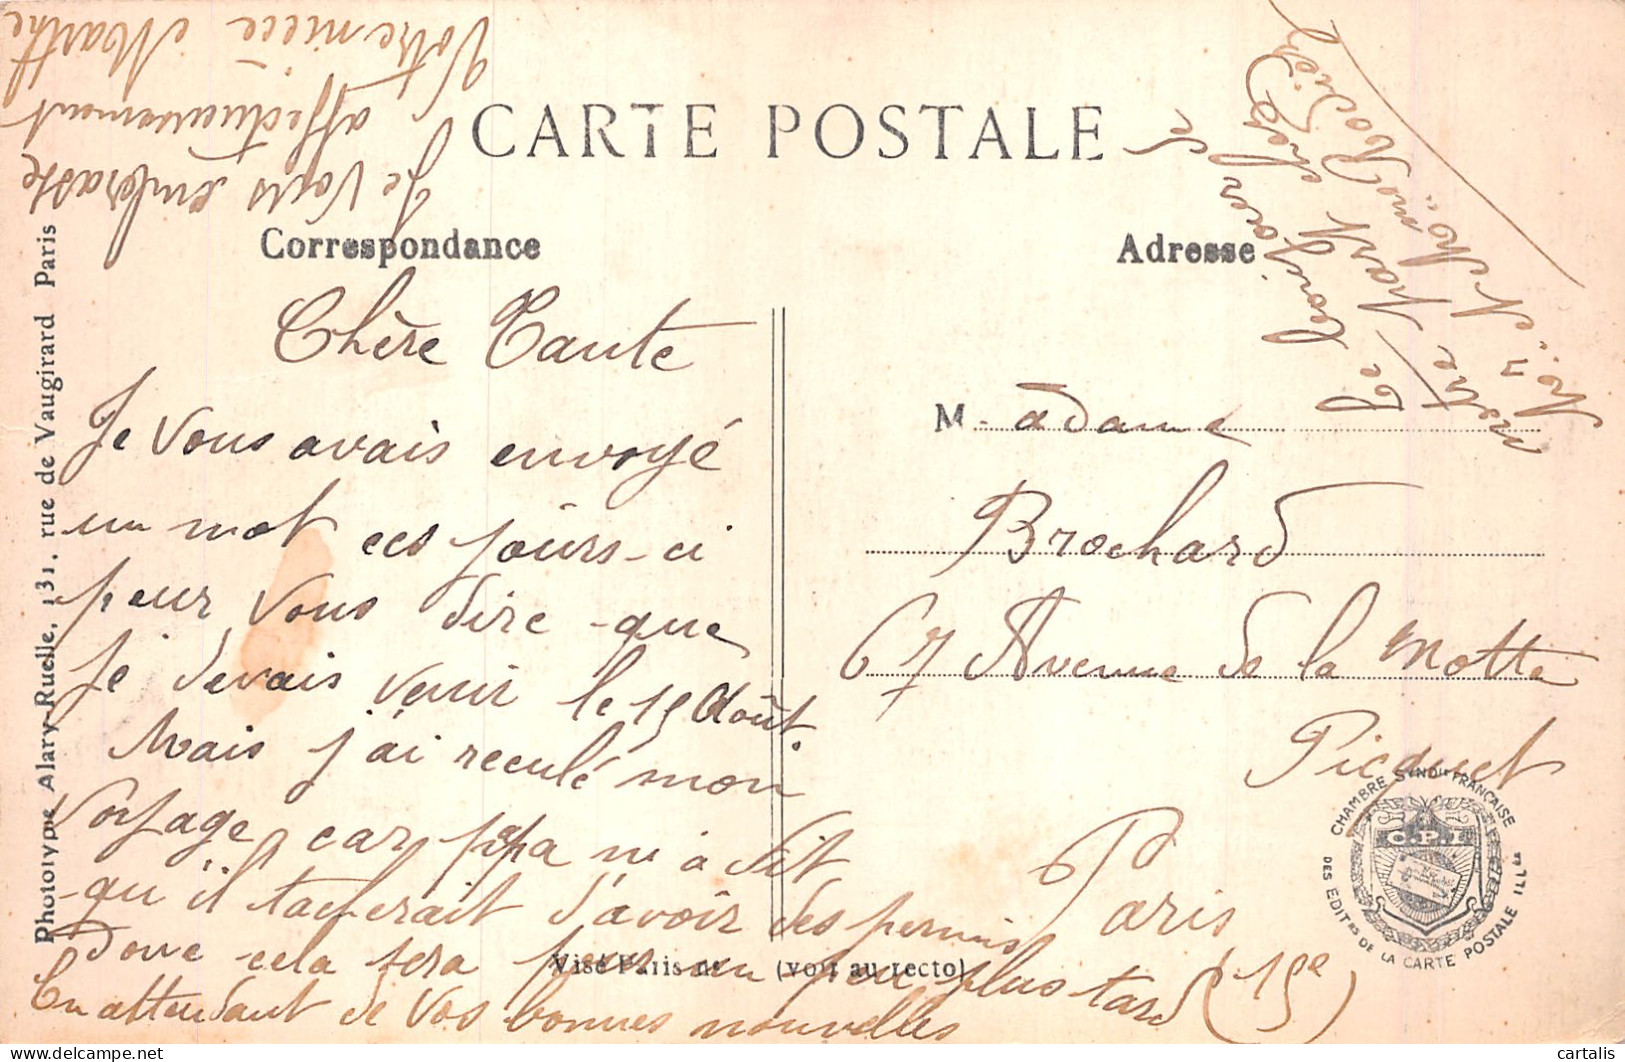 CARTE POSTALE
Correspondance
Adresse
Chère Tante
Je vous avais envoyé
un mot ces jours-ci
pour vous dire que
je devais venir le 15 Août.
Mais j'ai reculé mon
voyage, car papa m'a dit
qu'il tacherait d'avoir des permis
donc cela sera pour un peu plus tard
En attendant de vos bonnes nouvelles
Je vous embrasse
affectueusement
Votre nièce Marthe
M. adame
Brochard
67 Avenue de la Motte
Picquet
Paris
(15e)
notre part chez
Mr et Mme
Phototypie Alary-Ruelle, 131, rue de Vaugirard Paris
Visé Paris no (voir au recto)
CHAMBRE SYNDLE FRANÇAISE
DES EDITRS DE LA CARTE POSTALE ILLée
C.P.I